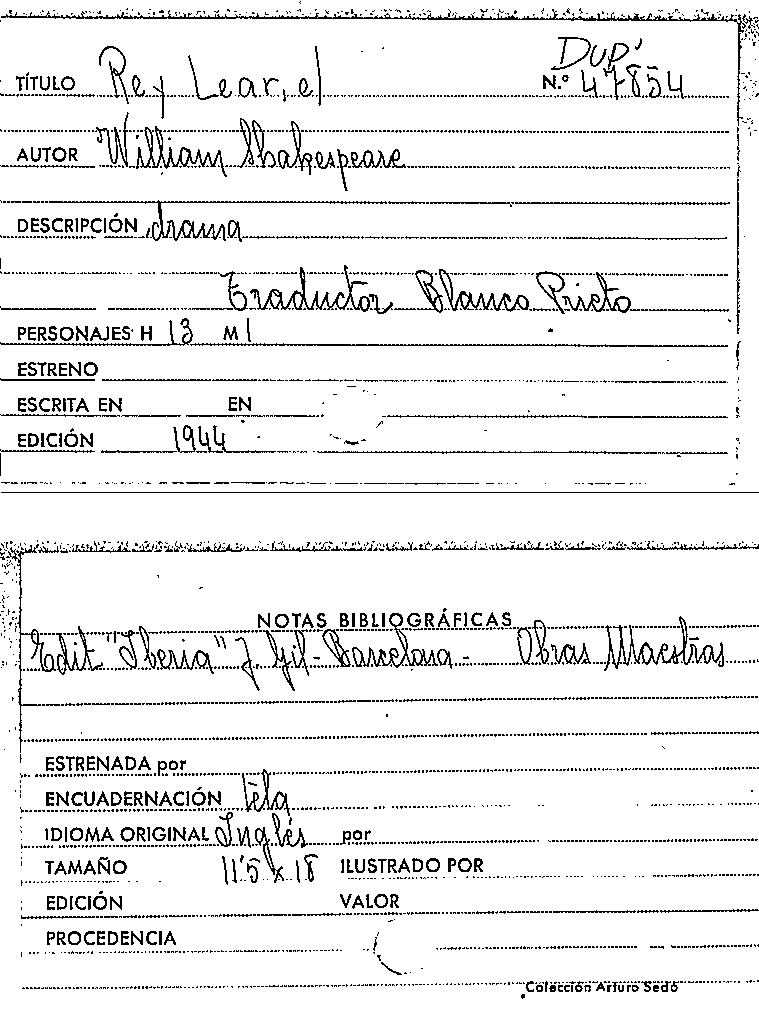 Dup'
TÍTULO Rey Lear, el N.º 47854
AUTOR William Shakespeare
DESCRIPCIÓN drama
Traductor Blanco Prieto
PERSONAJES H 13 M 1
ESTRENO
ESCRITA EN EN
EDICIÓN 1944
NOTAS BIBLIOGRÁFICAS
Edit. "Iberia" J. Gil - Barcelona - Obras Maestras
ESTRENADA por
ENCUADERNACIÓN tela
IDIOMA ORIGINAL Inglés por
TAMAÑO 11'5 x 18 ILUSTRADO POR
EDICIÓN VALOR
PROCEDENCIA
Colección Arturo Sedó